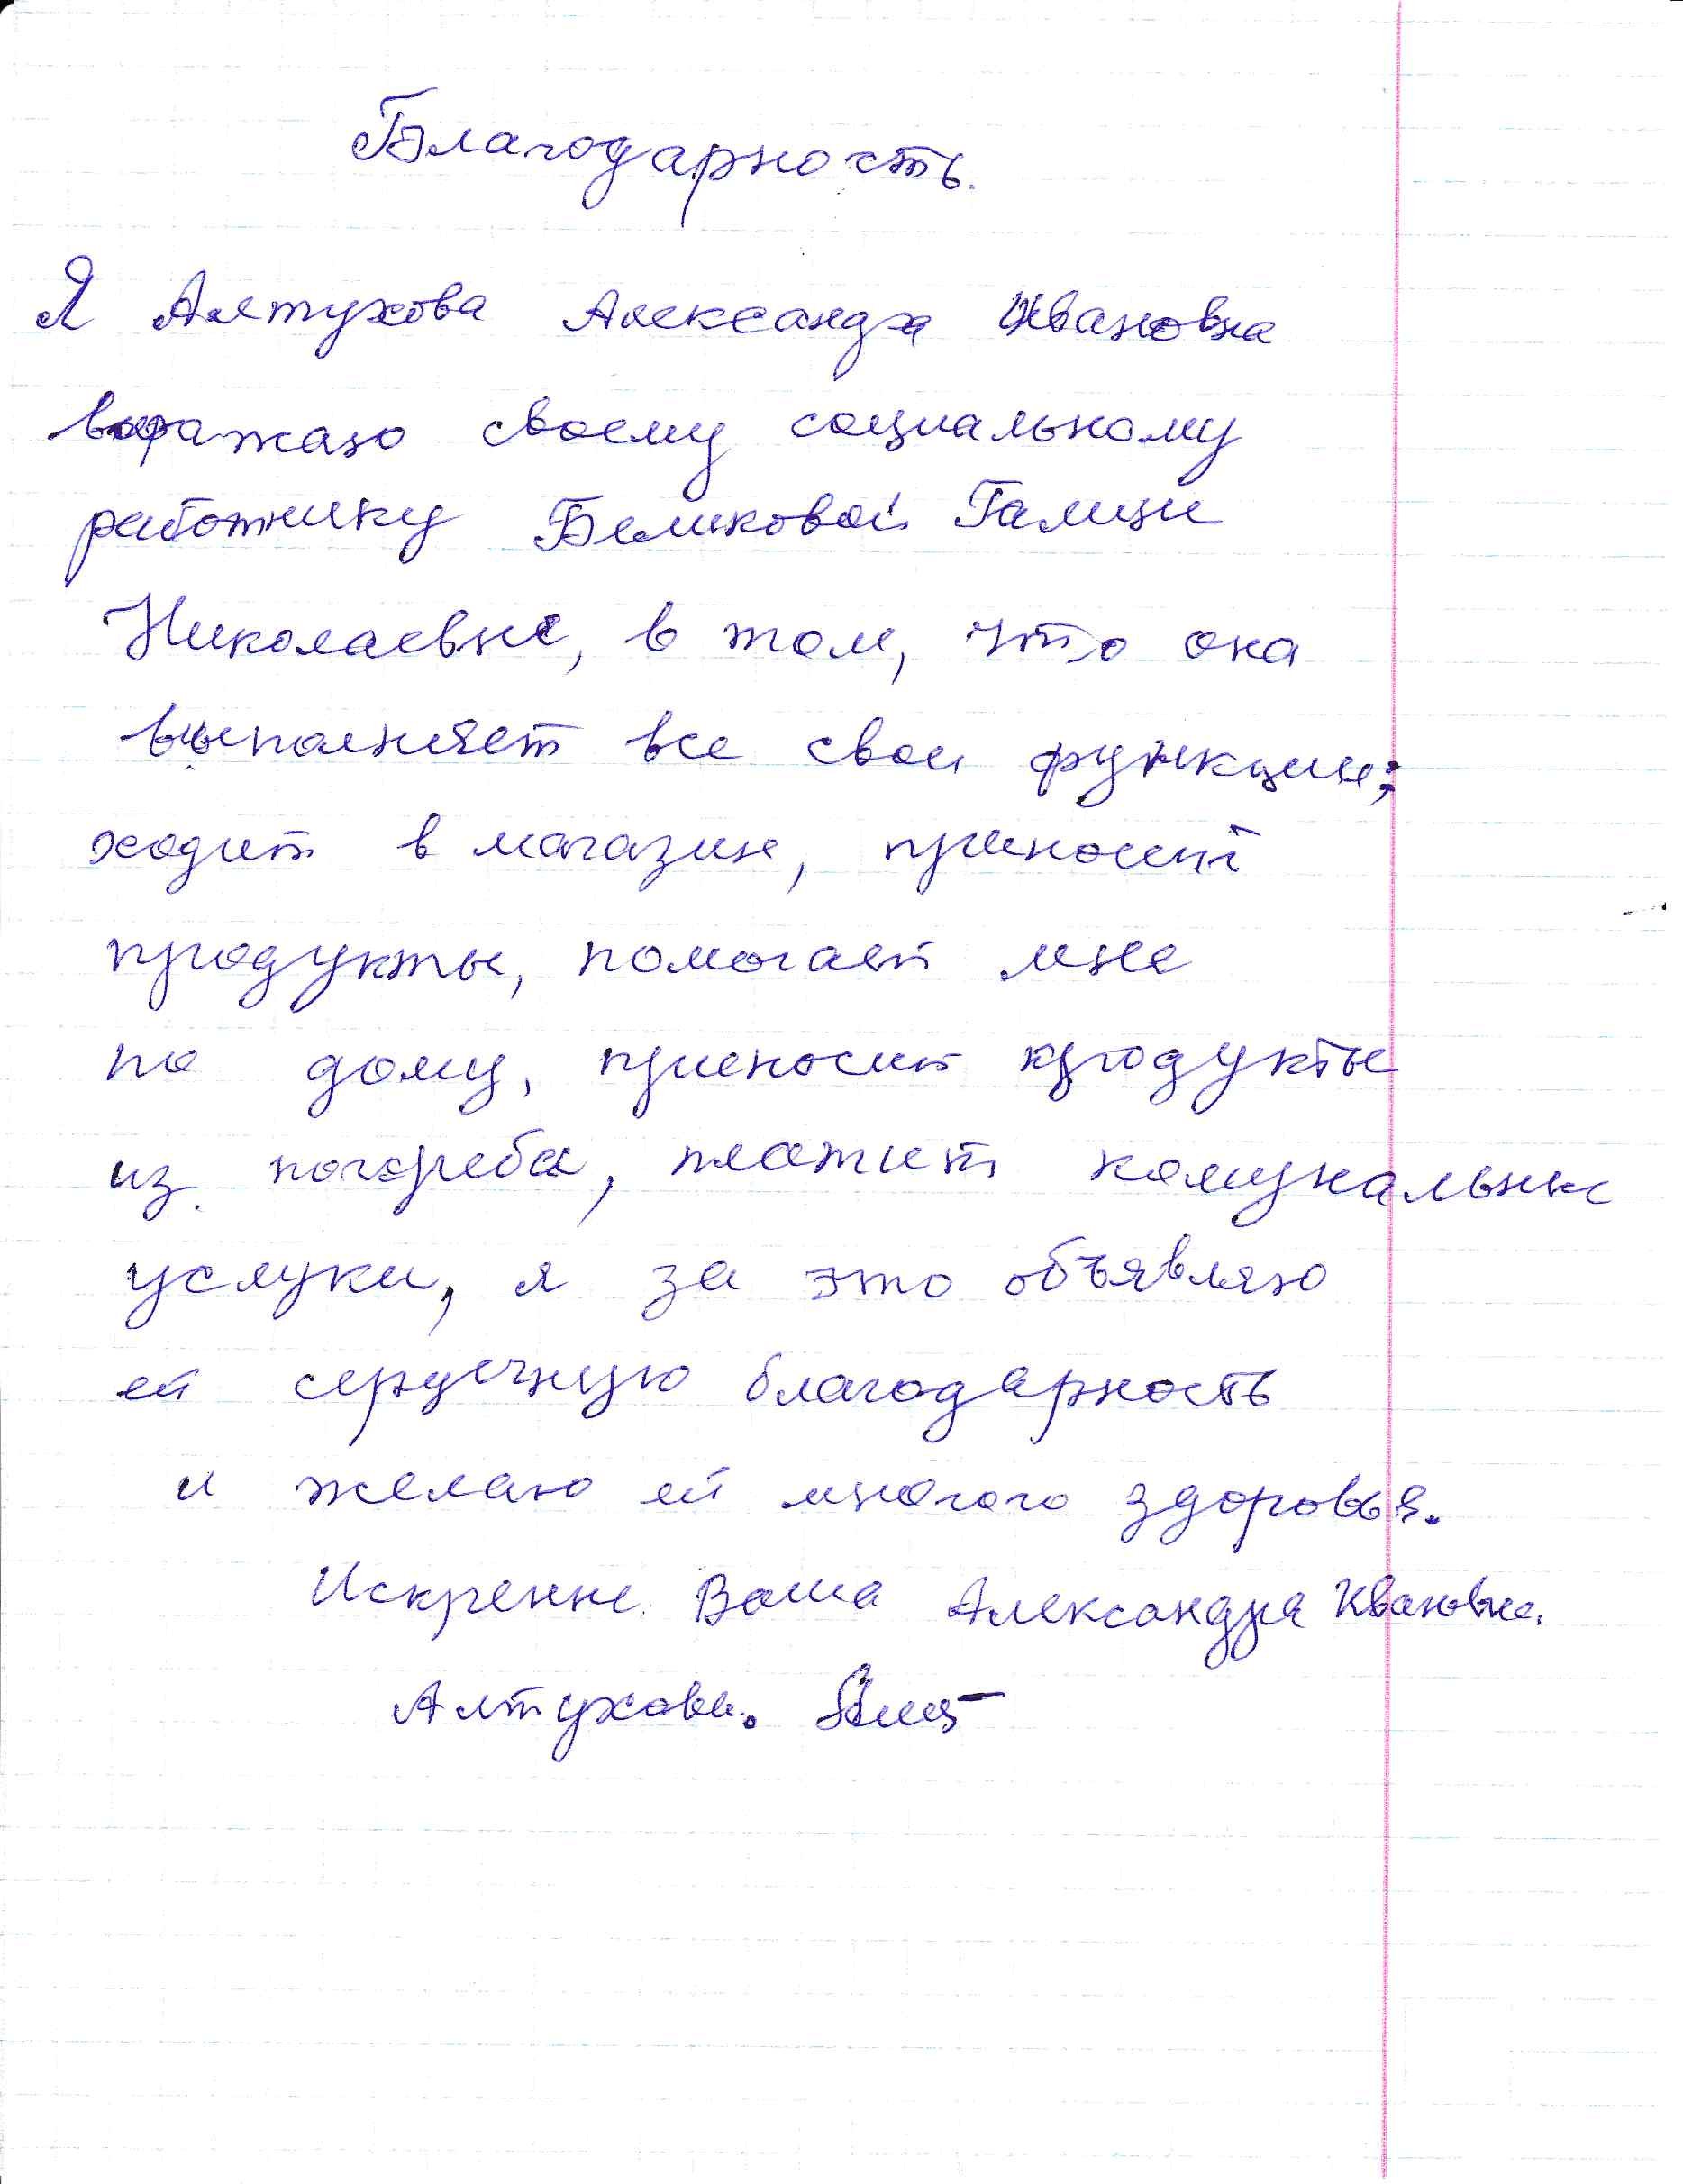 Благодарность.
Я Алтухова Александра Ивановна
выражаю своему социальному
работнику Беликовой Галине
Николаевне, в том, что она
выполняет все свои функции;
ходит в магазин, приносит
продукты, помогает мне
по дому, приносит продукты
из погреба, платит комунальные
услуки, я за это объявляю
ей сердечную благодарность
и желаю ей много здоровья.
Искренне Ваша Александра Ивановна.
Алтухова.